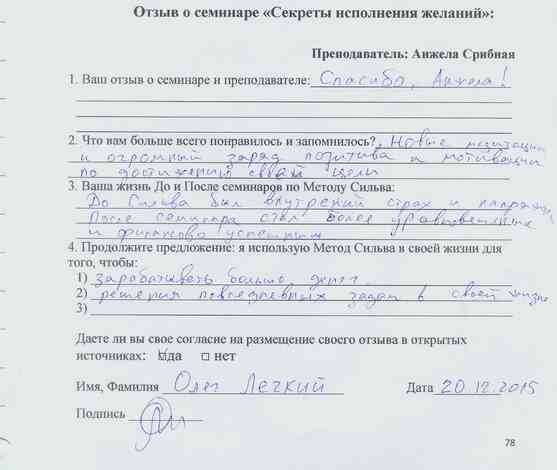 Отзыв о семинаре «Секреты исполнения желаний»:
Преподаватель: Анжела Србная
1. Ваш отзыв о семинаре и преподавателе: Спасибо, Анжела!
2. Что вам больше всего понравилось и запомнилось? Новые медитации
и огромный заряд позитива и мотивации
по достижению своей цели
3. Ваша жизнь До и После семинаров по Методу Сильва:
До Сильва был внутренний страх и
После семинара стал более уравновешенным
и финансово успешным
4. Продолжите предложение: я использую Метод Сильва в своей жизни для
того, чтобы:
1) зарабатывать больше денег
2) решения повседневных задач в своей жизни
3)
Даете ли вы свое согласие на размещение своего отзыва в открытых
источниках: ☑да □ нет
Имя, Фамилия Олег Легкий Дата 20.12.2015
Подпись
78